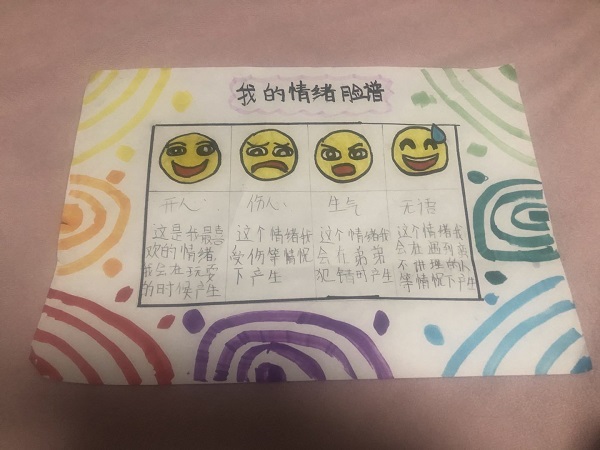 我的情绪脸谱
开心
这是我最喜
欢的情绪
我会在玩耍
的时候产生
伤心
这个情绪我
受伤等情况
下产生
生气
这个情绪我
会在弟弟
犯错时产生
无语
这个情绪我
会在遇到蛮
不讲理的人
等情况下产生